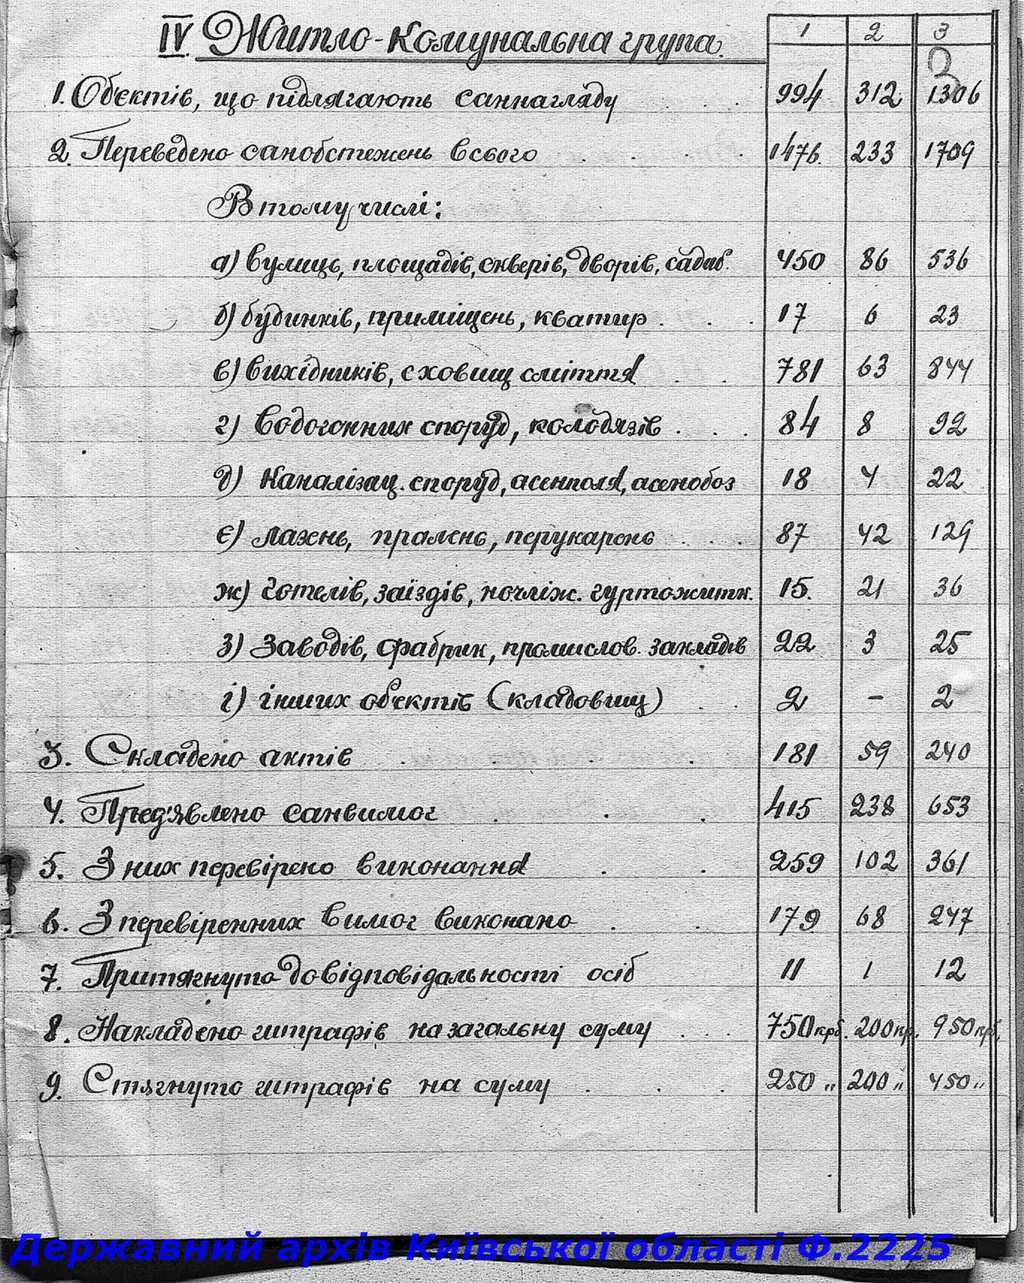 IV Житло-комунальна група 1 2 3
1. Обєктів, що підлягають саннагляду 994 312 1306
2. Переведено санобстежень всього 1476 233 1709
В тому числі:
а) вулиць, площадів, скверів, дворів, садиб. 450 86 536
б) будинків, приміщень, кватир 17 6 23
в) вихідників, сховищ сміття 781 63 844
г) водогонних споруд, колодязів 84 8 92
д) каналізац. споруд, асенполя, асенобоз 18 4 22
є) лазень, пралень, перукарень 87 42 129
ж) готелів, заїздів, ночліж. гуртожитк. 15 21 36
з) заводів, фабрик, промислов. закладів 22 3 25
і) інших обєктів (кладовищ) 2 – 2
3. Складено актів 181 59 240
4. Пред'явлено санвимог 415 238 653
5. З них перевірено виконання 259 102 361
6. З перевіренних вимог виконано 179 68 247
7. Притягнуто до відповідальності осіб 11 1 12
8. Накладено штрафів на загальну суму 750 крб. 200 кр. 950 крб.
9. Стягнуто штрафів на суму 250 „ 200 „ 450 „
Державний архів Київської області Ф.2225